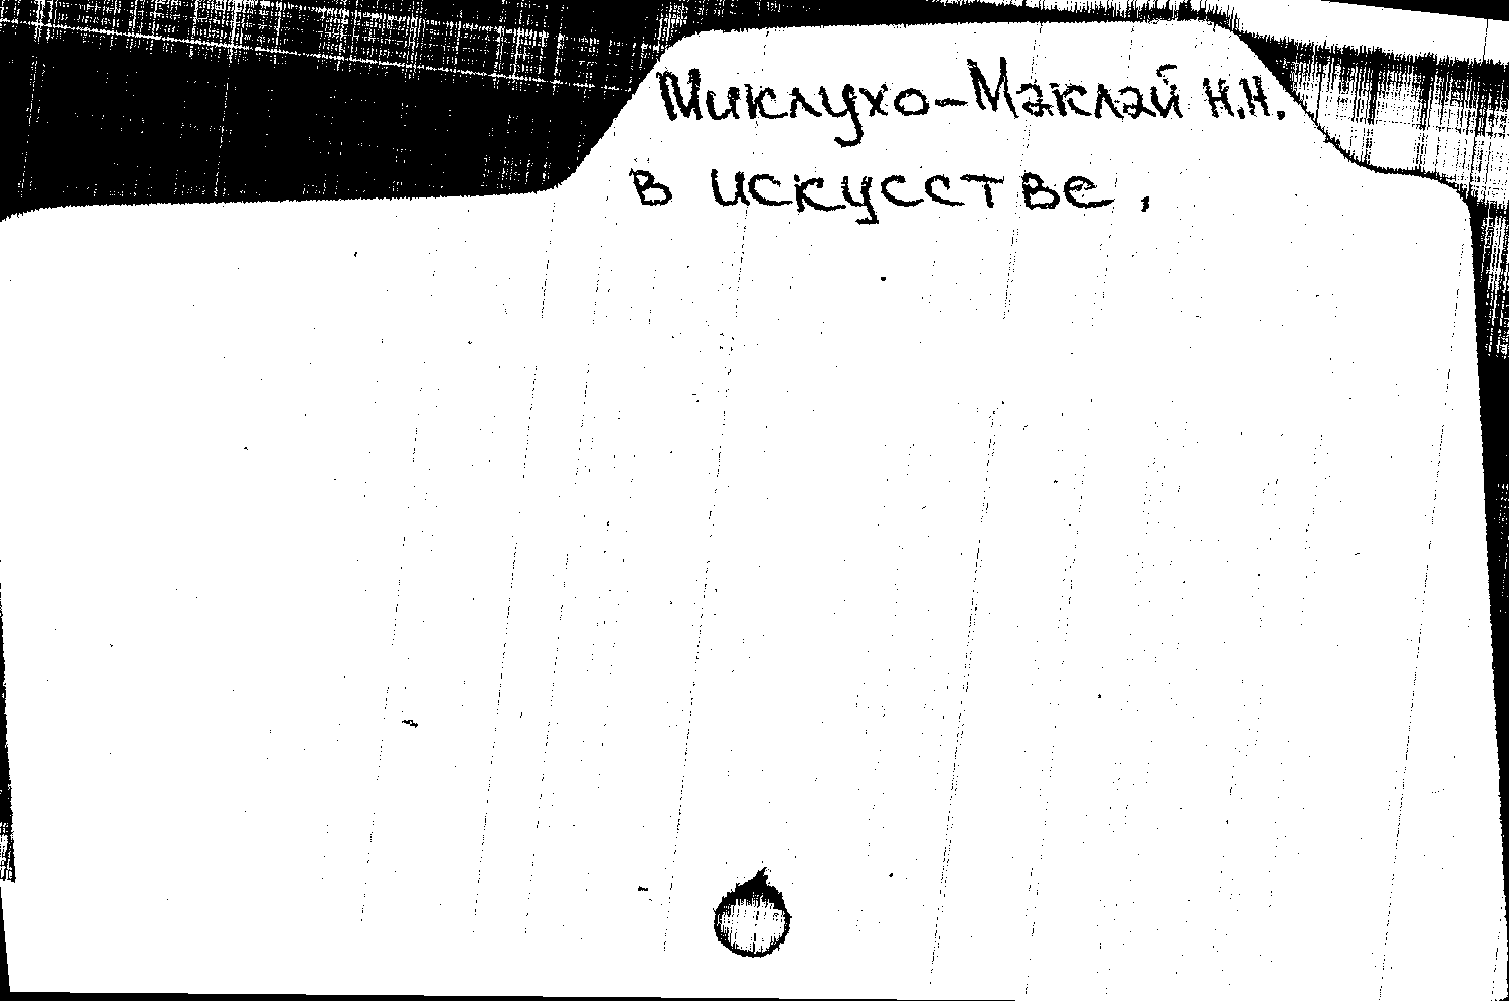 Миклухо-Маклай Н.Н.
в искусстве.